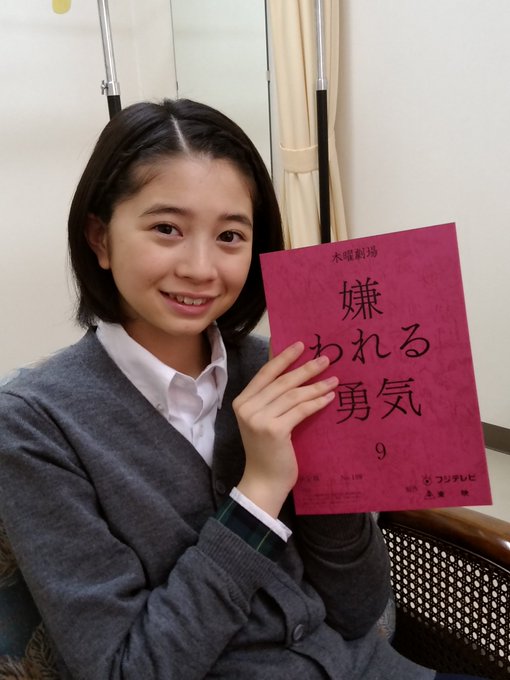 木曜劇場
嫌
われる
勇気
9
No 198
制作
フジテレビ
東映